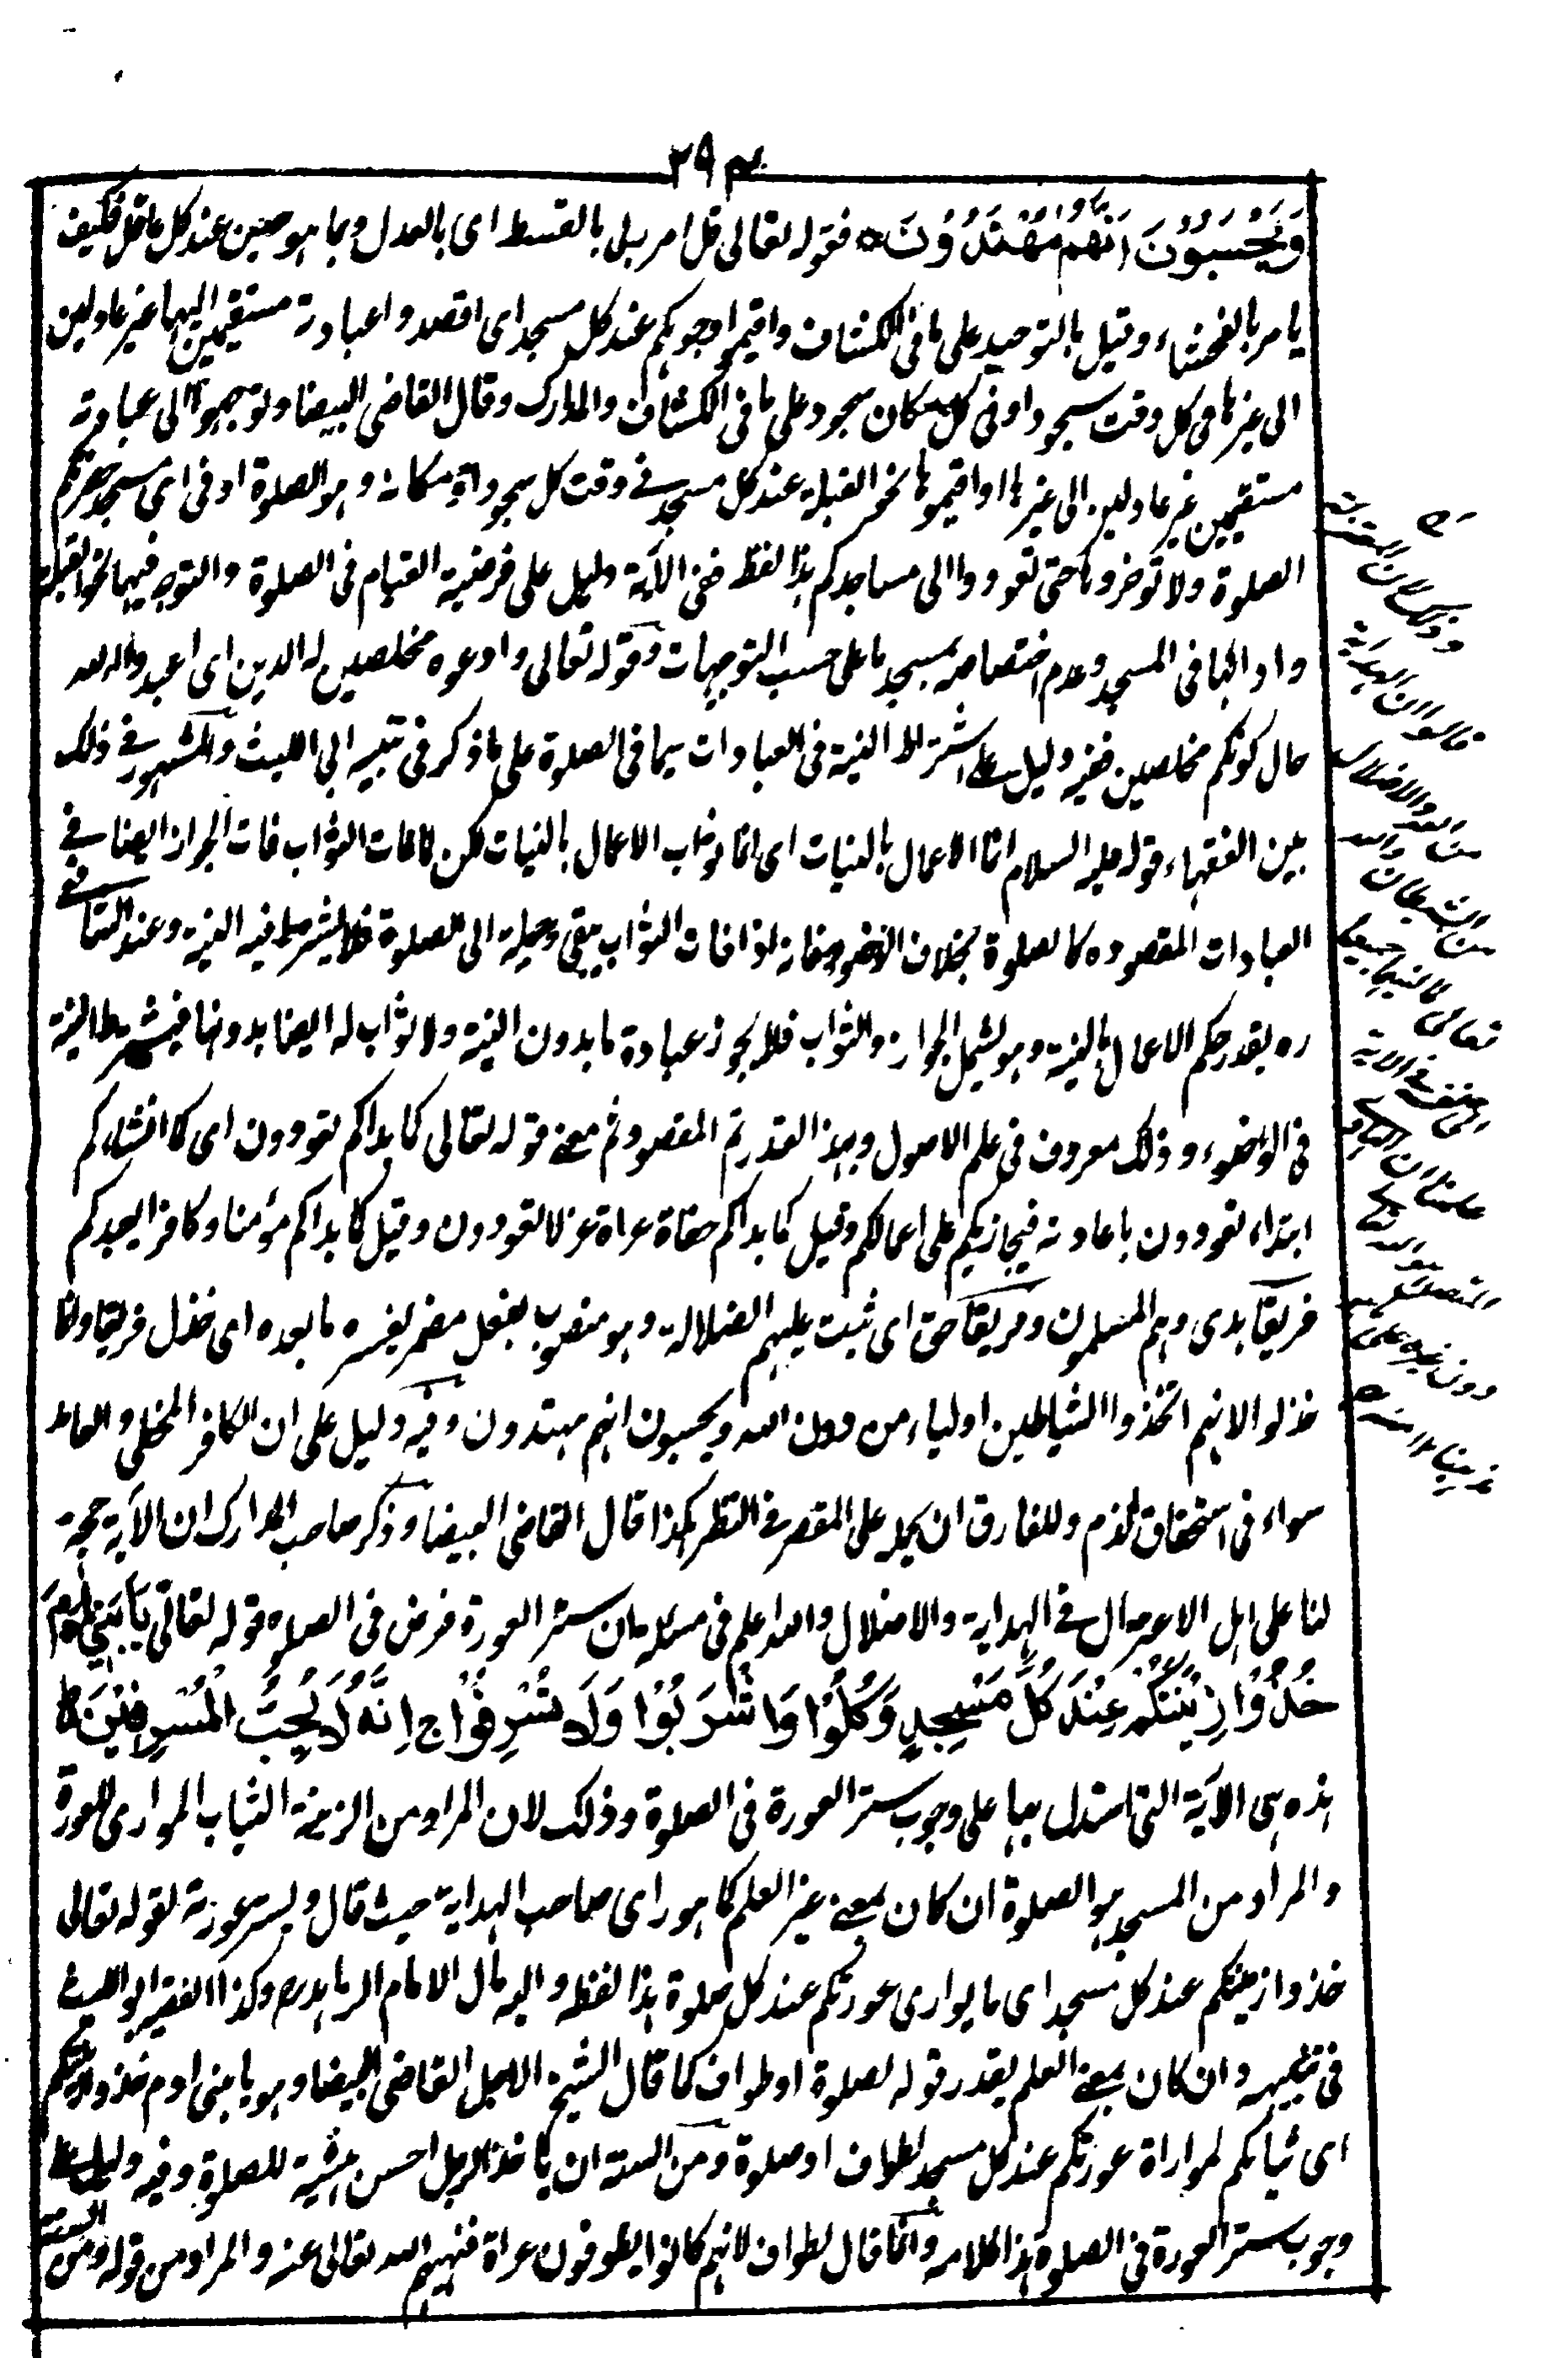 ٢٩٣
وَيَحْسَبُوْنَ اَنَّهُمْ مُهْتَدُوْنَ ه فقوله تعالى قل امر ربى بالقسط اى بالعدل وبما هو حسن عند كل عاقل فكيف
يامر بالفحشاء وقيل بالتوحيد على ما فى الكشاف واقيموا وجوهكم عند كل مسجد اى اقصدوا عبادته مستقيمين اليها غير عادلين
الى غيرها فى كل وقت سجود او فى كل مكان سجود على ما فى الكشاف والمدارك وقال القاضى البيضاوى توجهوا الى عبادته
مستقيمين غير عادلين الى غيرها او اقيموها نحو القبلة عند كل مسجد فى وقت كل سجود او مكانه وهو الصلوة او فى اى مسجد حضرتكم
الصلوة ولا توخروها حتى تعودوا الى مساجدكم هذا لفظه ففى الآية دليل على فرضية القيام فى الصلوة والتوجه فيها نحو القبلة
واداءها فى المسجد وعدم اختصاصه بمسجد ما على حسب التوجيهات وقوله تعالى وادعوه مخلصين له الدين اى اعبدوا الله
حال كونكم مخلصين ففيه دليل على اشتراط النية فى العبادات سيما فى الصلوة على ما ذكر فى تنبيه ابى الليث والمشهور فى ذلك
بين الفقهاء قوله عليه السلام انما الاعمال بالنيات اى انما ثواب الاعمال بالنيات لكن لما فات الثواب فات الجواز ايضا فى
العبادات المقصوده كالصلوة بخلاف الوضوء فانه لو فات الثواب يبقى وسيلة الى الصلوة فلا يشترط فيه النية وعند الشافعى
ره يقدر حكم الاعمال بالنية وهو يشمل الجواز والثواب فلا يجوز عبادة ما بدون النية ولا ثواب له ايضا بدونها فيشترط النية
فى الوضوء وذلك معروف فى علم الاصول وبهذا القدر يتم المقصود ثم معنى قوله تعالى كما بداكم تعودون اى كما انشاءكم
ابتداء تعودون باعادته فيجازيكم على اعمالكم وقيل كما بداكم حفاة عراة غرلا تعودون وقيل كما بداكم مؤمنا وكافرا يعيدكم
فريقا هدى وهم المسلمون وفريقا حق اى ثبت عليهم الضلالة وهو منصوب بفعل مضمر يفسره ما بعده اى خذل فريقا وانما
خذلوا لانهم اتخذوا الشياطين اولياء من دون الله ويحسبون انهم مهتدون وفيه دليل على ان الكافر المخطى والمعاند
سواء فى استحقاق الذم وللفارق ان يحمله على المقصر فى النظر هكذا قال القاضى البيضاوى وذكر صاحب المدارك ان الآية حجة
لنا على اهل الاعتزال فى الهداية والاضلال والله اعلم فى مسئلة ان ستر العورة فرض فى الصلوة قوله تعالى يَا بَنِيْ اٰدَمَ
خُذُوْا زِيْنَتَكُمْ عِنْدَ كُلِّ مَسْجِدٍ وَكُلُوْا وَاشْرَبُوْا وَلَا تُسْرِفُوْا ج اِنَّهُ لَا يُحِبُّ الْمُسْرِفِيْنَ ط
هذه هى الآية التى استدل بها على وجوب ستر العورة فى الصلوة وذلك لان المراد من الزينة الثياب الموارى للعورة
والمراد من المسجد هو الصلوة ان كان بمعنى غير العلم كما هو راى صاحب الهداية حيث قال ويستر عورته لقوله تعالى
خذوا زينتكم عند كل مسجد اى ما يوارى عورتكم عند كل صلوة هذا لفظه واليه مال الامام الزاهد ره وكذا الفقيه ابو الليث
فى تنبيهه وان كان بمعنى العلم يقدر قوله لصلوة او طواف كما قال الشيخ الاجل القاضى البيضاوى يا بنى ادم خذوا زينتكم
اى ثيابكم لمواراة عورتكم عند كل مسجد لطواف او صلوة ومن السنة ان ياخذ الرجل احسن هيئته للصلوة وفيه دليل على
وجوب ستر العورة فى الصلوة هذا كلامه وانما قال لطواف لانهم كانوا يطوفون عراة فنهيهم الله تعالى عنه والمراد من قوله ومن السنة
وذلك لان المعتزلة
قالوا ان الهداية
من الله والاضلال
من الشيطان
تعالى
فى الآية
دون غيره